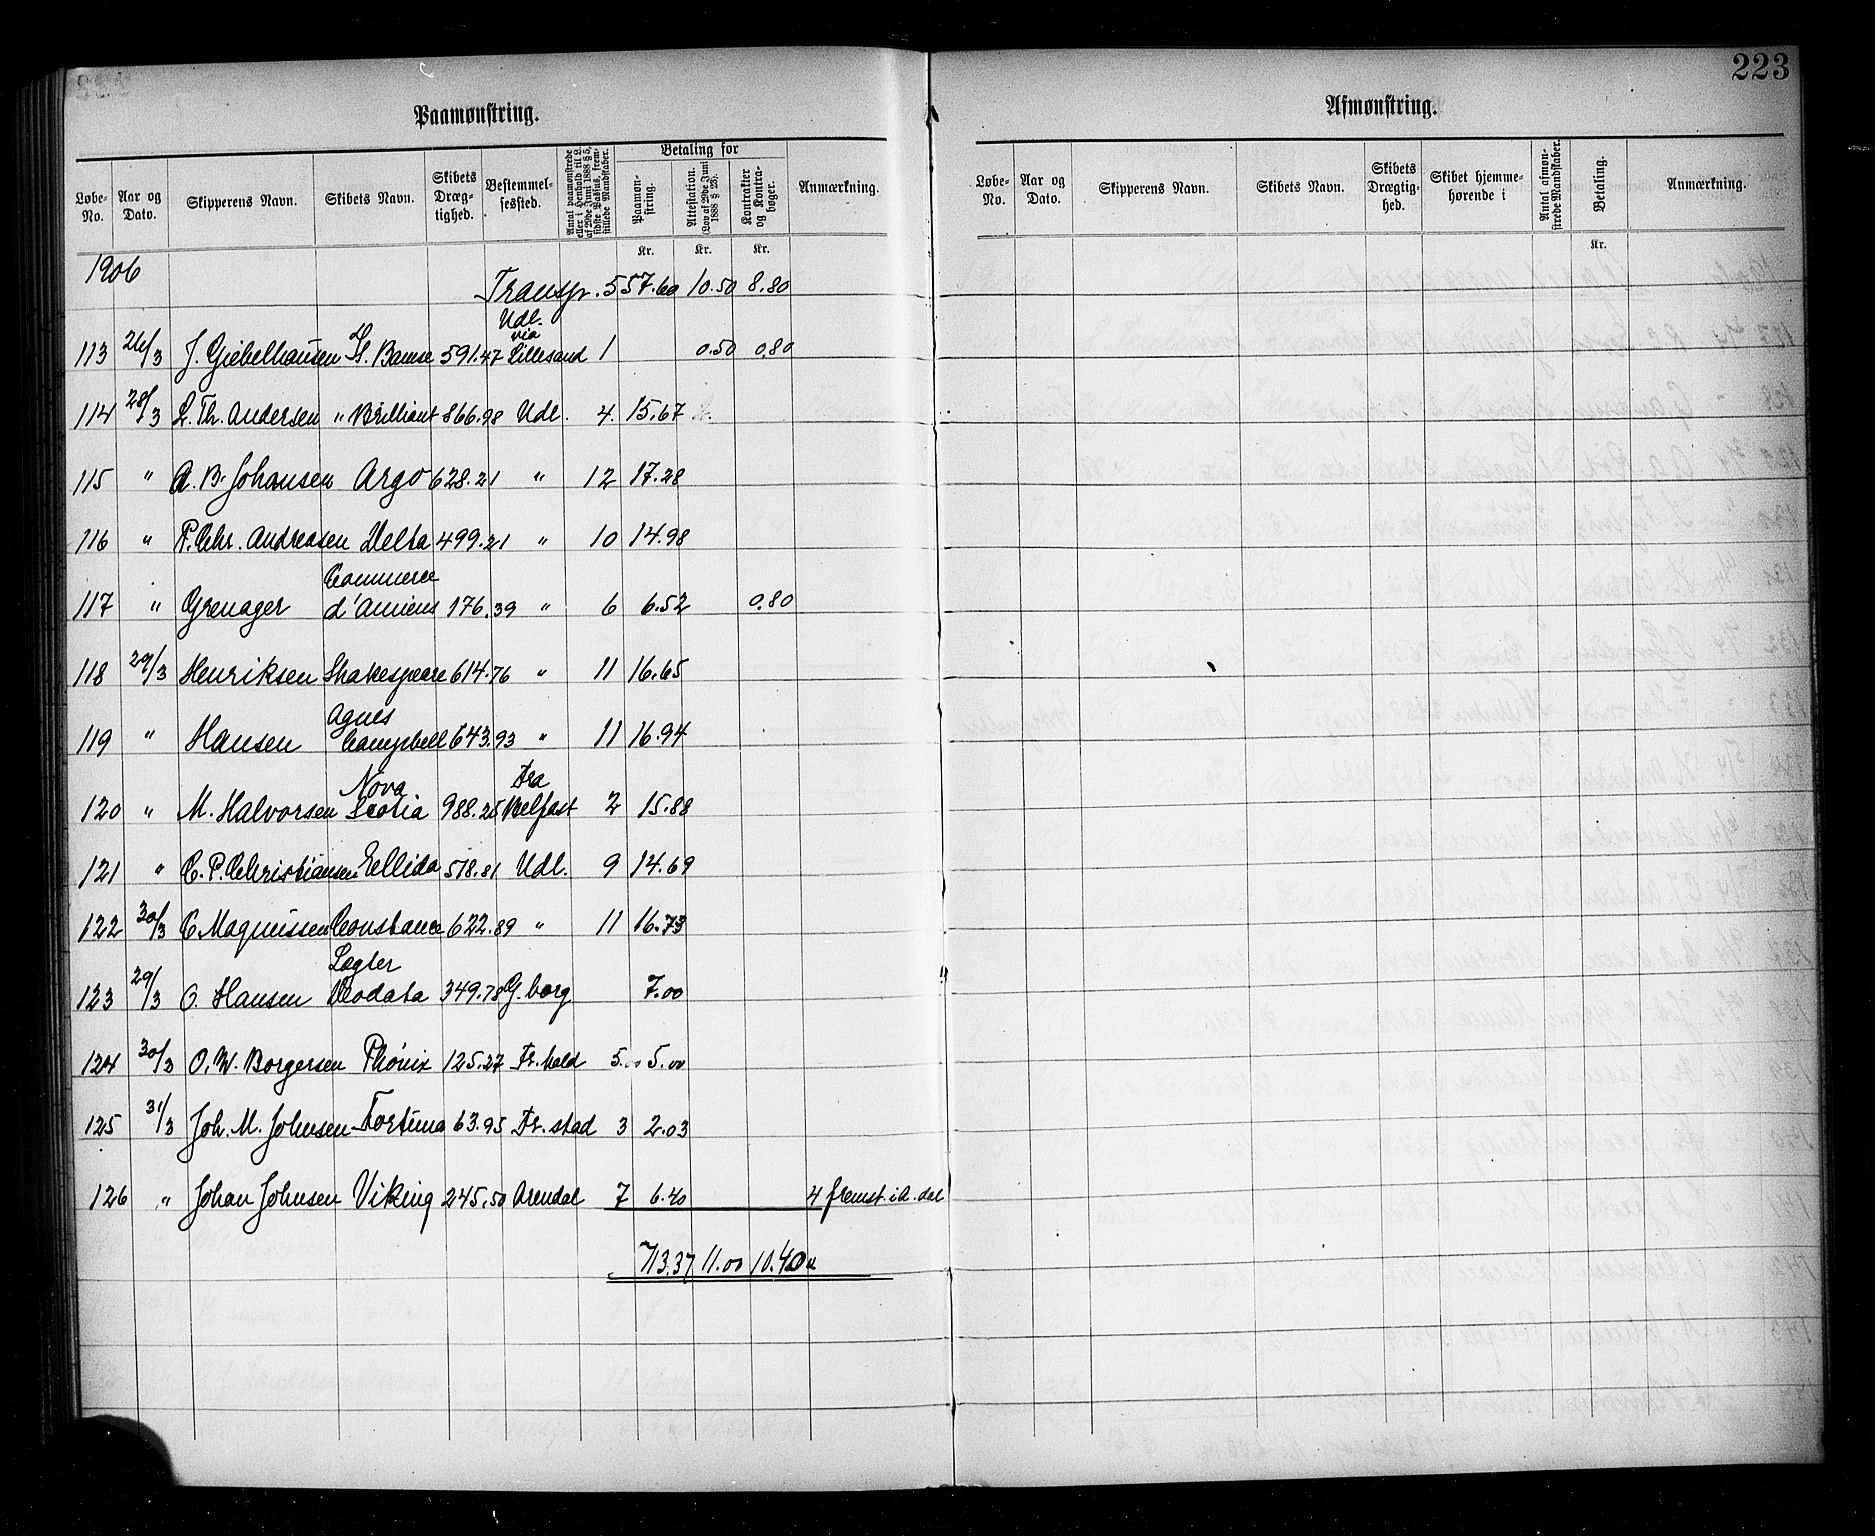 223
Paamønstring.
Løbe-No. Aar og Dato. Skipperens Navn. Skibets Navn. Skibets Dræg-tighed. Bestemmel-sessted. Antal paamønstrede eller i Henhold til L. af 29de Juni 1888 § 5, sidste Passus, frem-stillede Mandskaber. Betaling for Paamøn-string. Attestation. (Lov af 29de Juni 1888 § 23). Kontrakter og Kontra-bøger. Anmærkning.
Kr. Kr. Kr.
1906
Transp. 557.60 10.50 8.80
113 26/3 J. Giebelhausen S. Bamse 591.47 Udl. via Lillesand 1 0.50 0.80
114 28/3 L. Th. Andersen " Brilliant 866.98 Udl. 4. 15.67
115 " A. B. Johansen Argo 628.21 " 12 17.28
116 " P. Chr. Andreasen Delta 499.21 " 10 14.98
117 " Grenager Commerce d'Amiens 176.39 " 6 6.52 0.80
118 29/3 Henriksen Shakespeare 614.76 " 11 16.65
119 " Hansen Agnes Campbell 643.93 " 11 16.94
120 " M. Halvorsen Nova Scotia 988.25 Fra Belfast 2 15.88
121 " C. P. Christiansen Ellida 578.81 Udl. 9 14.69
122 30/3 C Magnussen Constance 622.89 " 11 16.73
123 29/3 O. Hansen Lægter Deodata 349.78 G.borg 7.00
124 30/3 O. W. Borgersen Phönix 125.27 Fr.hald 5.00 5.00
125 31/3 Joh. M. Johnsen Fortuna 63.95 Fr.stad 3 2.03
126 " Johan Johnsen Viking 245.50 Arendal 7 6.40 4 fremst. i A.dal
713.37 11.00 10.40
Afmønstring.
Løbe-No. Aar og Dato. Skipperens Navn. Skibets Navn. Skibets Drægtig-hed. Skibet hjemme-hørende i Antal afmøn-strede Mandskaber. Betaling. Anmærkning.
Kr.